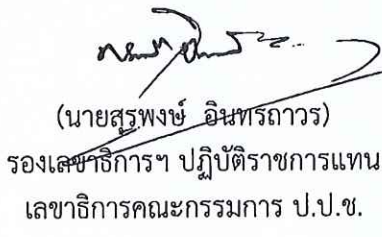 (นายสุรพงษ์ อินทรถาวร)
รองเลขาธิการฯ ปฏิบัติราชการแทน
เลขาธิการคณะกรรมการ ป.ป.ช.